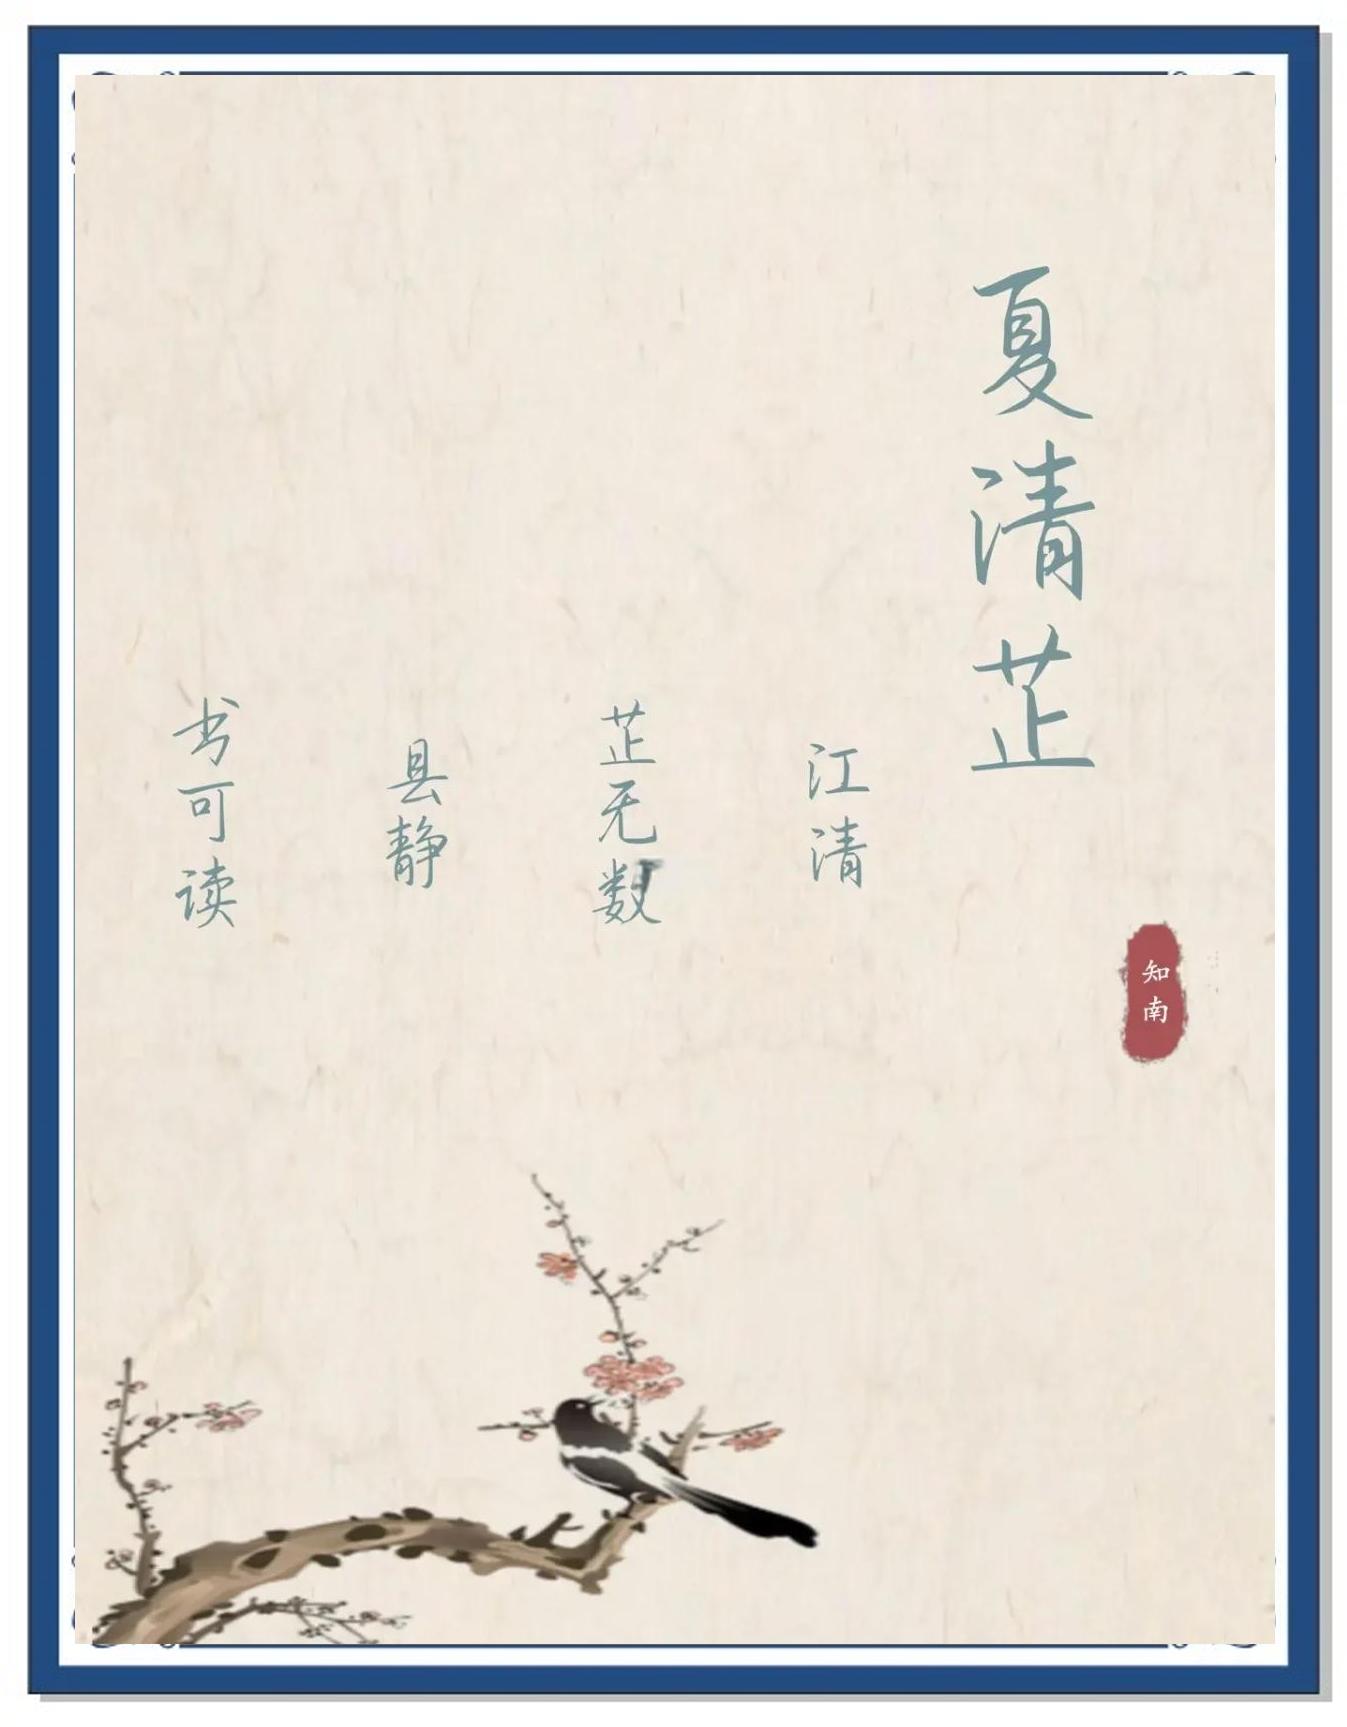 夏清芷
知南
江清
芷无数
县静
书可读